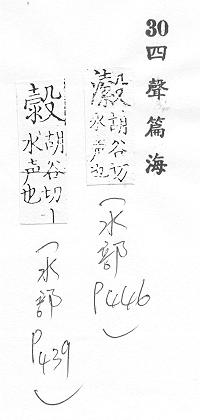 30四聲篇海
胡谷切
水声也
（水部
P446）
胡谷切｜
水声也
（水部
P439）